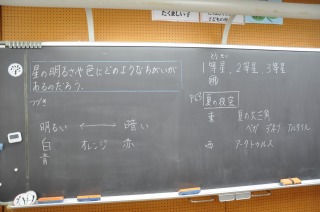 星の明るさや色にどのようなちがいが
あるのだろう。
明るい ←→ 暗い
白 オレンジ 赤
青
1等星、2等星、3等星
夏の夜空
東 夏の大三角
ベガ デネブ アルタイル
西 アークトゥルス